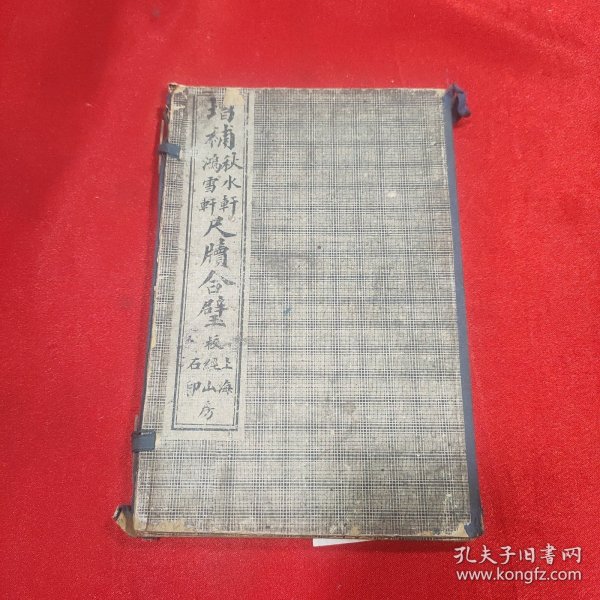 增補秋水軒鴻雪軒尺牘合璧
上海
校經山房
石印
孔夫子旧书网
www.kongfz.com